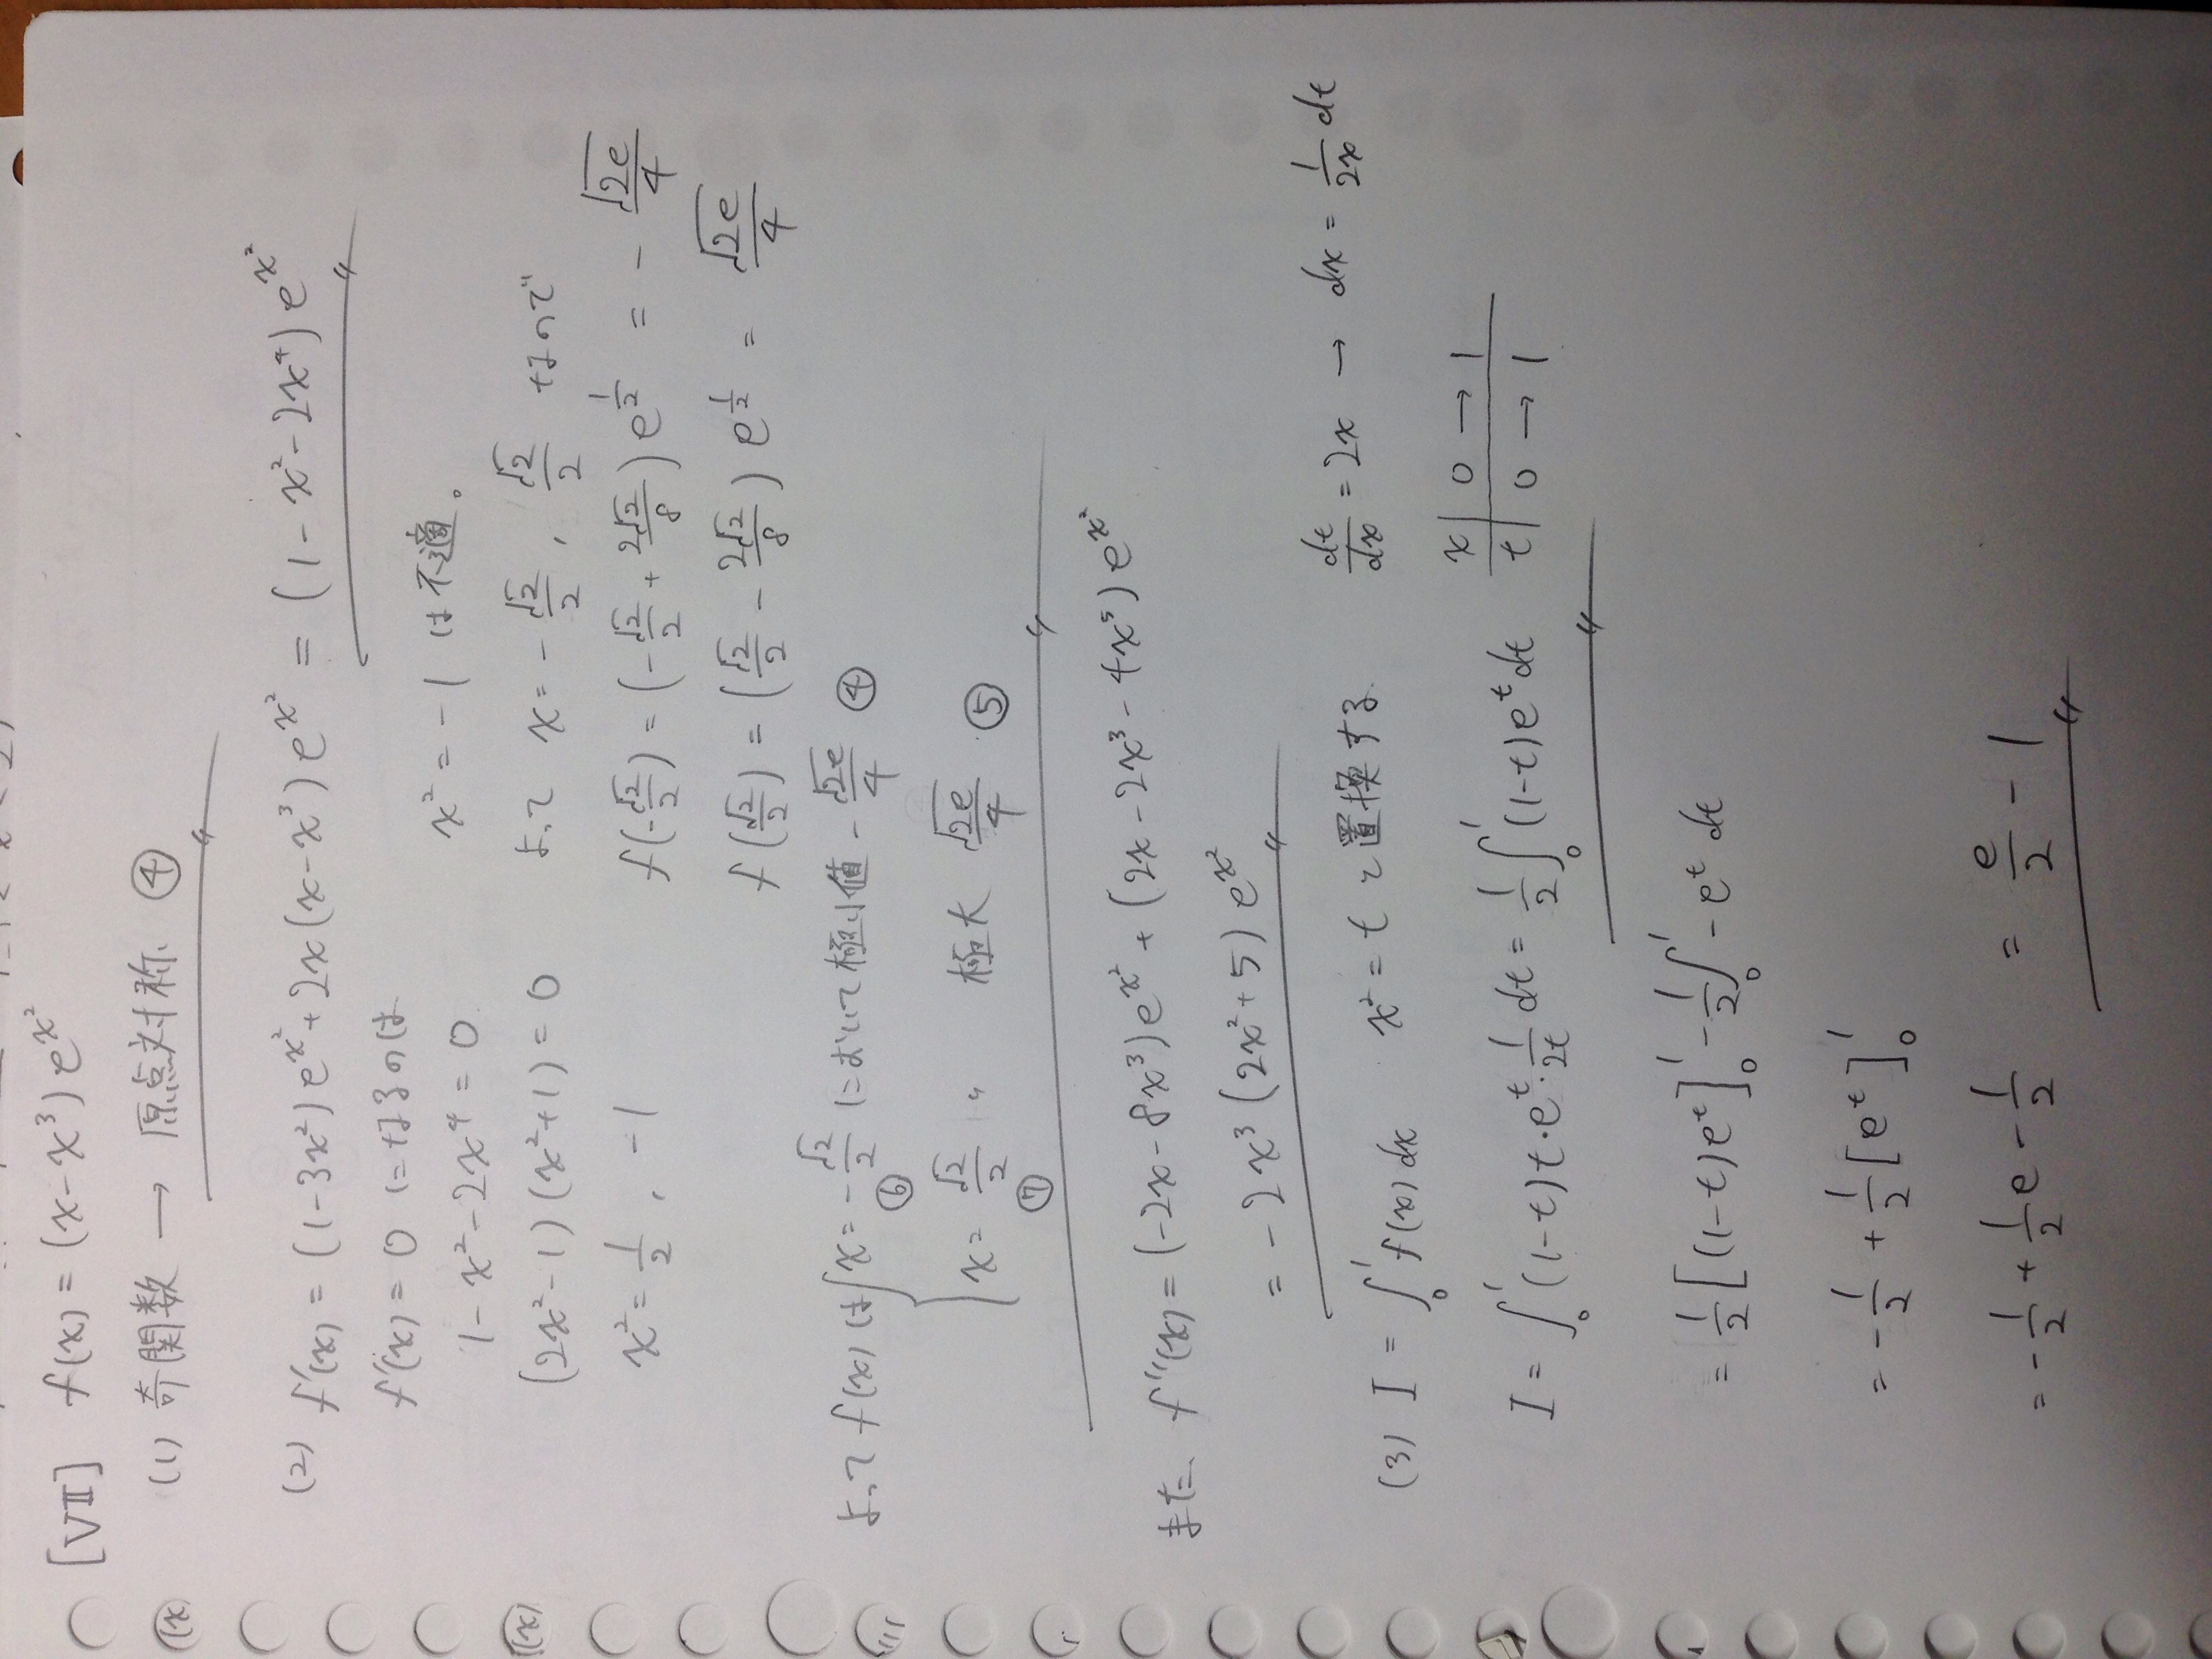 [VII] f(x) = (x-x³)e^{x²}
(1) 奇関数 → 原点対称 ④
(2) f'(x) = (1-3x²)e^{x²} + 2x(x-x³)e^{x²} = (1-x²-2x⁴)e^{x²}
f'(x) = 0 になるのは
1-x²-2x⁴ = 0
(2x²-1)(x²+1) = 0
x² = 1/2, -1
x² = -1 は不適。
よって x = -√2/2, √2/2 なので
f(-√2/2) = (-√2/2 + 2√2/8)e^{1/2} = -√2e/4
f(√2/2) = (√2/2 - 2√2/8)e^{1/2} = √2e/4
よって f(x) は { x = -√2/2 ⑥ において極小値 -√2e/4 ④
x = √2/2 ⑦ 〃 極大 √2e/4 ⑤
また f''(x) = (-2x-8x³)e^{x²} + (2x-2x³-4x⁵)e^{x²}
= -2x³(2x²+5)e^{x²}
(3) I = ∫₀¹ f(x)dx x² = t と置換する dt/dx = 2x → dx = 1/2x dt
I = ∫₀¹ (1-t)t・e^t・1/2t dt = 1/2∫₀¹(1-t)e^t dt
x | 0 → 1
t | 0 → 1
= 1/2[(1-t)e^t]₀¹ - 1/2∫₀¹ -e^t dt
= -1/2 + 1/2[e^t]₀¹
= -1/2 + 1/2e - 1/2 = e/2 - 1